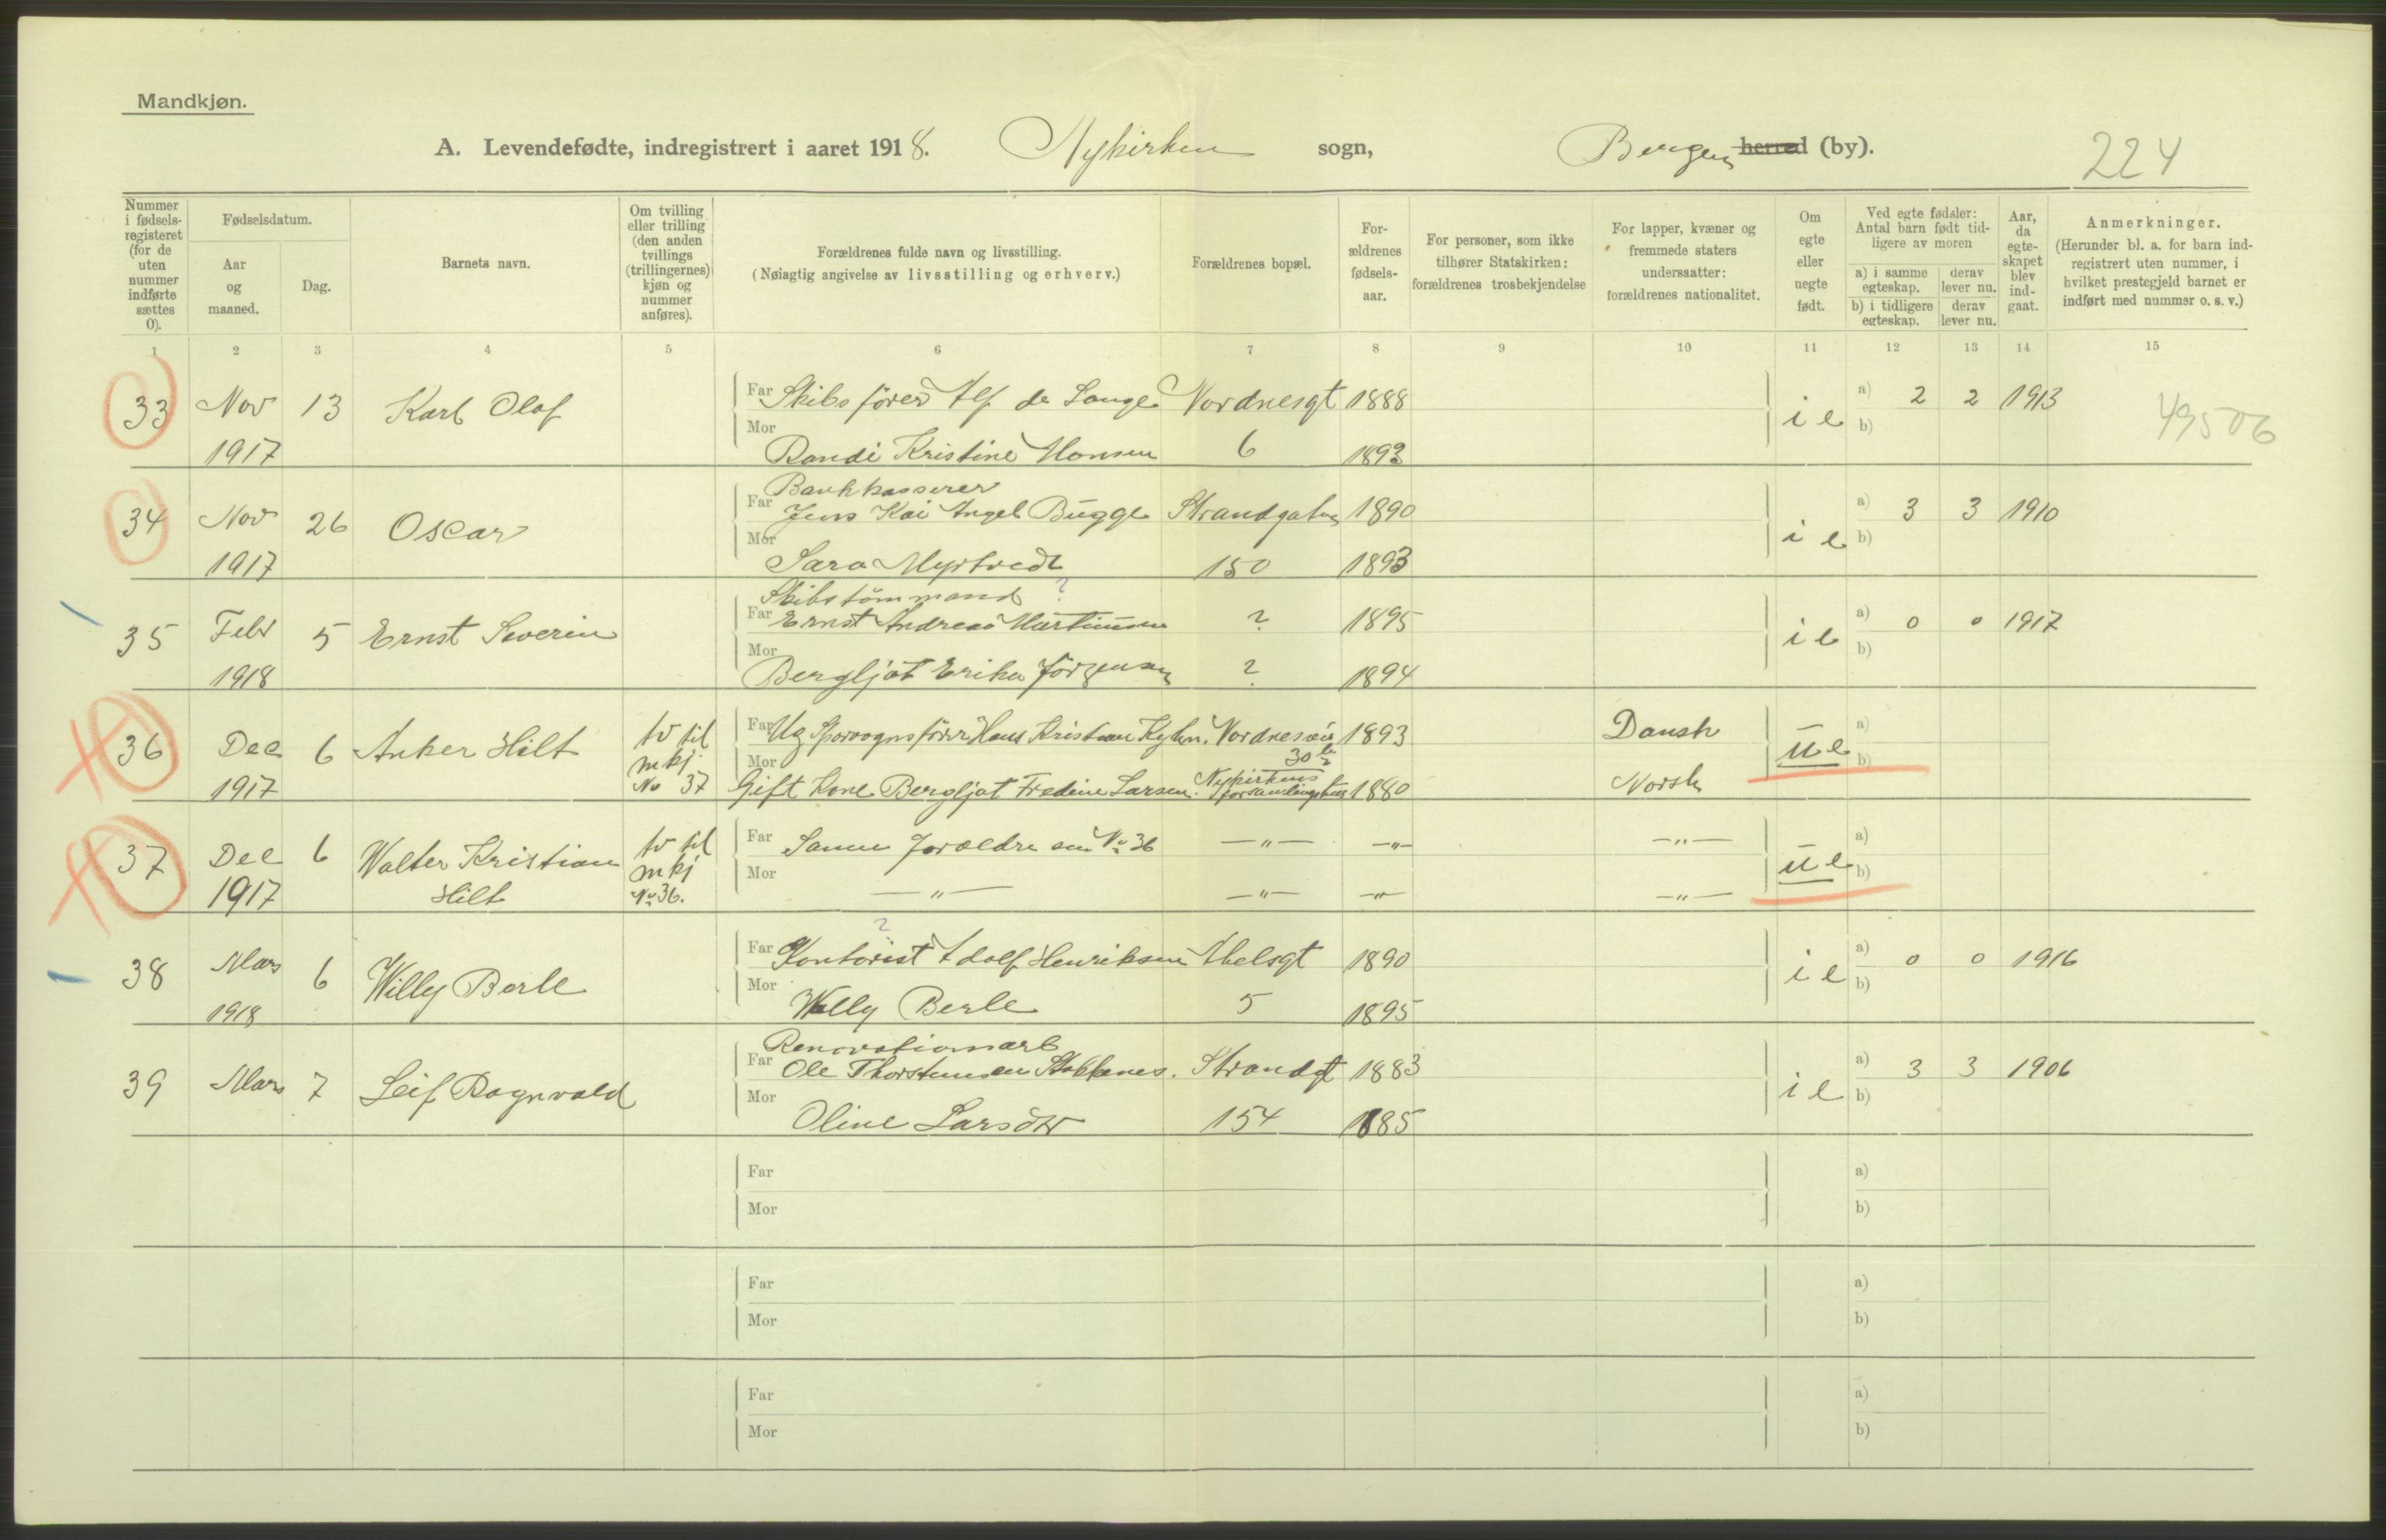 Mandkjøn.
A. Levendefødte, indregistrert i aaret 1918. Nykirken sogn, Bergen herred (by). 224
Nummer i fødsels-registeret (for de uten nummer indførte sættes 0).
Fødselsdatum.
Aar og maaned.
Dag.
Barnets navn.
Om tvilling eller trilling (den anden tvillings (trillingernes) kjøn og nummer anføres).
Forældrenes fulde navn og livsstilling.
(Nøiagtig angivelse av livsstilling og erhverv.)
Forældrenes bopæl.
For-ældrenes fødsels-aar.
For personer, som ikke tilhører Statskirken: forældrenes trosbekjendelse
For lapper, kvæner og fremmede staters undersaatter: forældrenes nationalitet.
Om egte eller uegte født.
Ved egte fødsler: Antal barn født tid-ligere av moren
a) i samme egteskap. derav lever nu.
b) i tidligere egteskap. derav lever nu.
Aar, da egte-skapet blev ind-gaat.
Anmerkninger.
(Herunder bl. a. for barn ind-registrert uten nummer, i hvilket prestegjeld barnet er indført med nummer o. s. v.)
1 2 3 4 5 6 7 8 9 10 11 12 13 14 15
33 Nov 13 Karl Olaf Far Skibsfører Alf de Lange Nordnesgt 1888 i e a) 2 2 1913 49506
1917 Mor Randi Kristine Monsen 6 1893 b)
Bankkasserer
34 Nov 26 Oscar Far Jens Kai Angel Bugge Strandgaten 1890 i e a) 3 3 1910
1917 Mor Sara Myrtvedt 150 1893 b)
Skibstømmand ?
35 Febr 5 Ernst Severin Far Ernst Andreas Martinsen ? 1895 i e a) 0 0 1917
1918 Mor Bergljot Erika Jørgensen ? 1894 b)
36 Dec 6 Anker Hilt tv til mkj. No 37 Far Ug Sporvognsfører Hans Kristian Kyhn. Nordnesvei 30 b 1893 Dansk u e a)
1917 Mor Gift Kone Bergljot Fredine Larsen. Nykirkens forsamlingshus 1880 Norsk b)
37 Dec 6 Walter Kristian tv til mkj Far Samme forældre som No 36 —"— —"— —"— u e a)
1917 Hilt No 36. Mor —"— —"— —"— —"— b)
?
38 Mars 6 Willy Berle Far Kontorist Adolf Henriksen Abelsgt 1890 i e a) 0 0 1916
1918 Mor Welly Berle 5 1895 b)
Renovationsarb
39 Mars 7 Leif Ragnvald Far Ole Thorstensen Stokkenes. Strandgt 1883 i e a) 3 3 1906
Mor Oline Larsdtr 154 1885 b)
Far a)
Mor b)
Far a)
Mor b)
Far a)
Mor b)